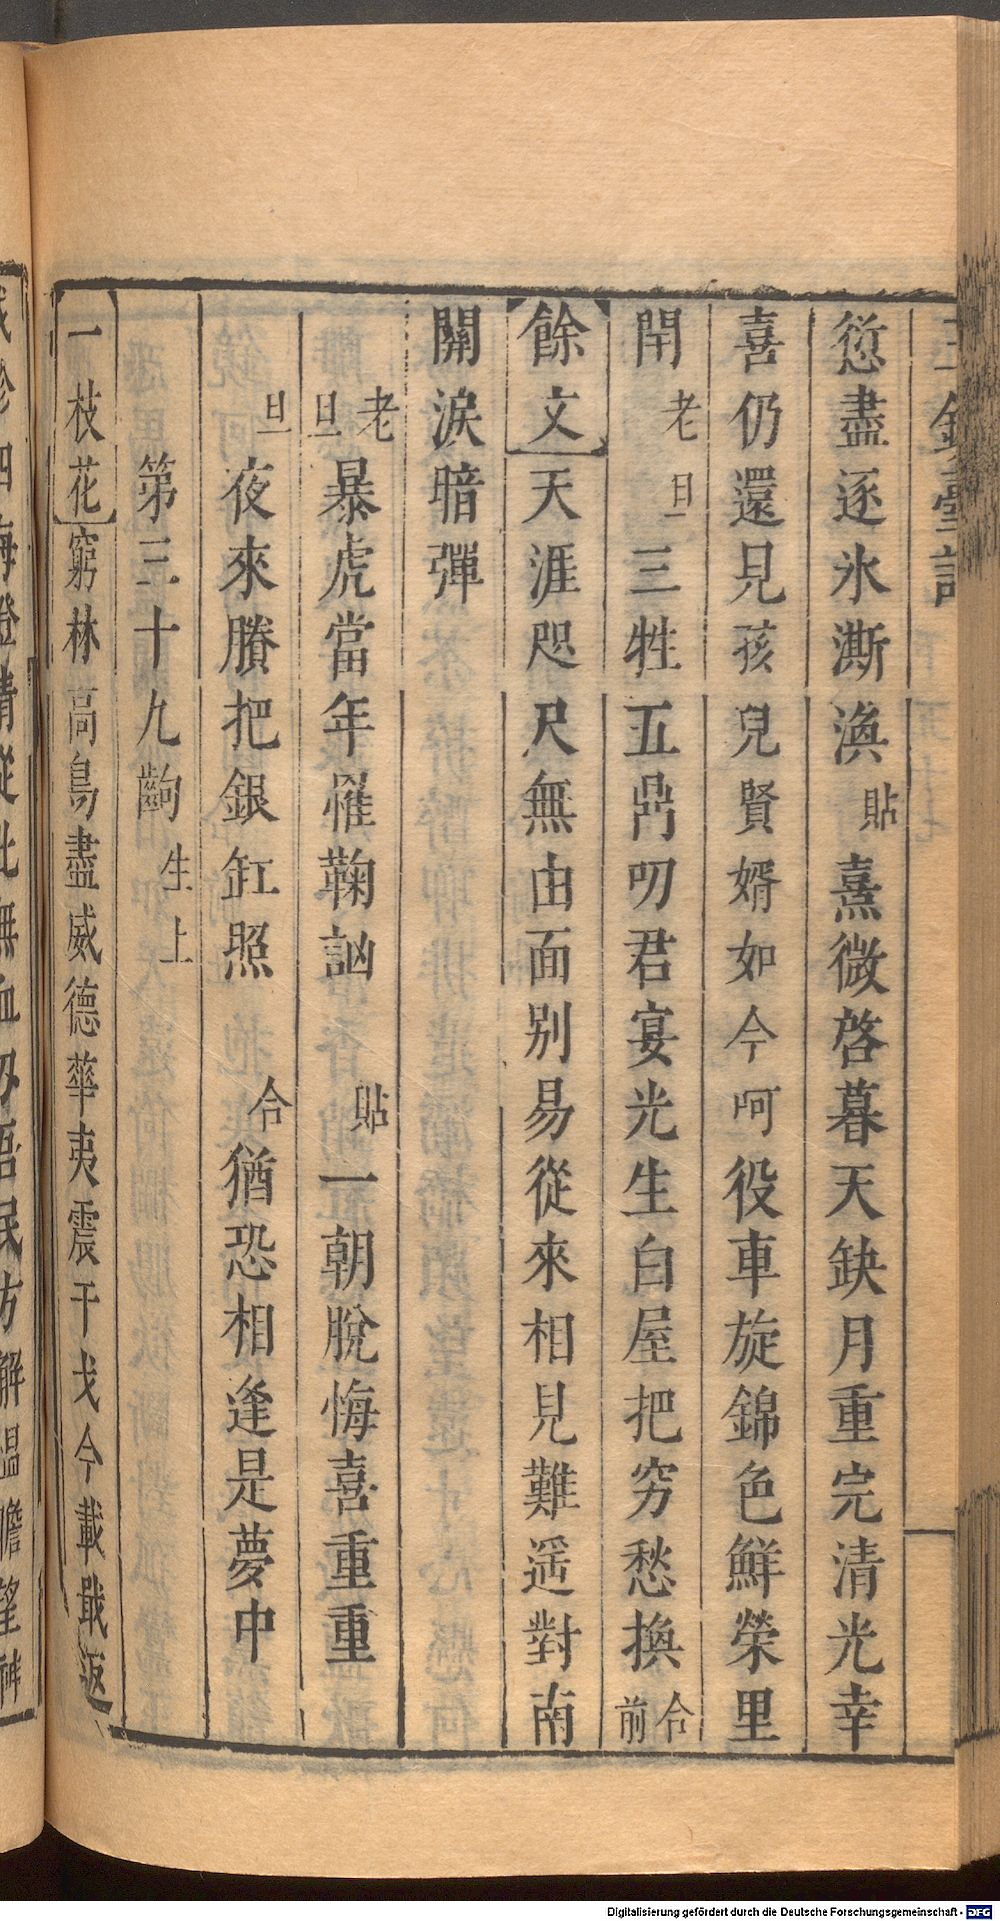 愆盡逐氷澌渙貼熹微啓暮天缺月重完清光幸
喜仍還見孩兒賢婿如今呵役車旋錦色鮮榮里
閈老旦三牲五鼎叨君宴光生白屋把穷愁換合前
餘文天涯咫尺無由面別易從來相見難遥對南
關淚暗彈
老旦暴虎當年罹鞠訩 貼一朝脫悔喜重重
旦夜來賸把銀缸照 合猶恐相逢是夢中
第三十九齣生上
一枝花窮林高鳥盡威德華夷震干戈今載戢返
Digitalisierung gefördert durch die Deutsche Forschungsgemeinschaft - DFG